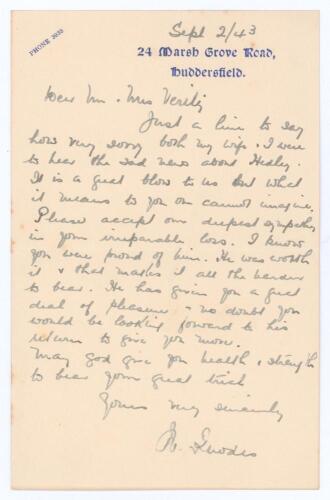 Sept 2/43
PHONE 3035
24 Marsh Grove Road,
Huddersfield.
Dear Mr. & Mrs Verity
Just a line to say
how very sorry both my wife & I were
to hear the sad news about Hedley.
It is a great blow to us but what
it means to you one cannot imagine.
Please accept our deepest sympathy
in your irreparable loss. I know
you were proud of him. He was worth
it & that makes it all the harder
to bear. He has given you a great
deal of pleasure & no doubt you
would be looking forward to his
return to give you more.
May god give you health & strength
to bear your great trial
Yours very sincerely
W. Rhodes